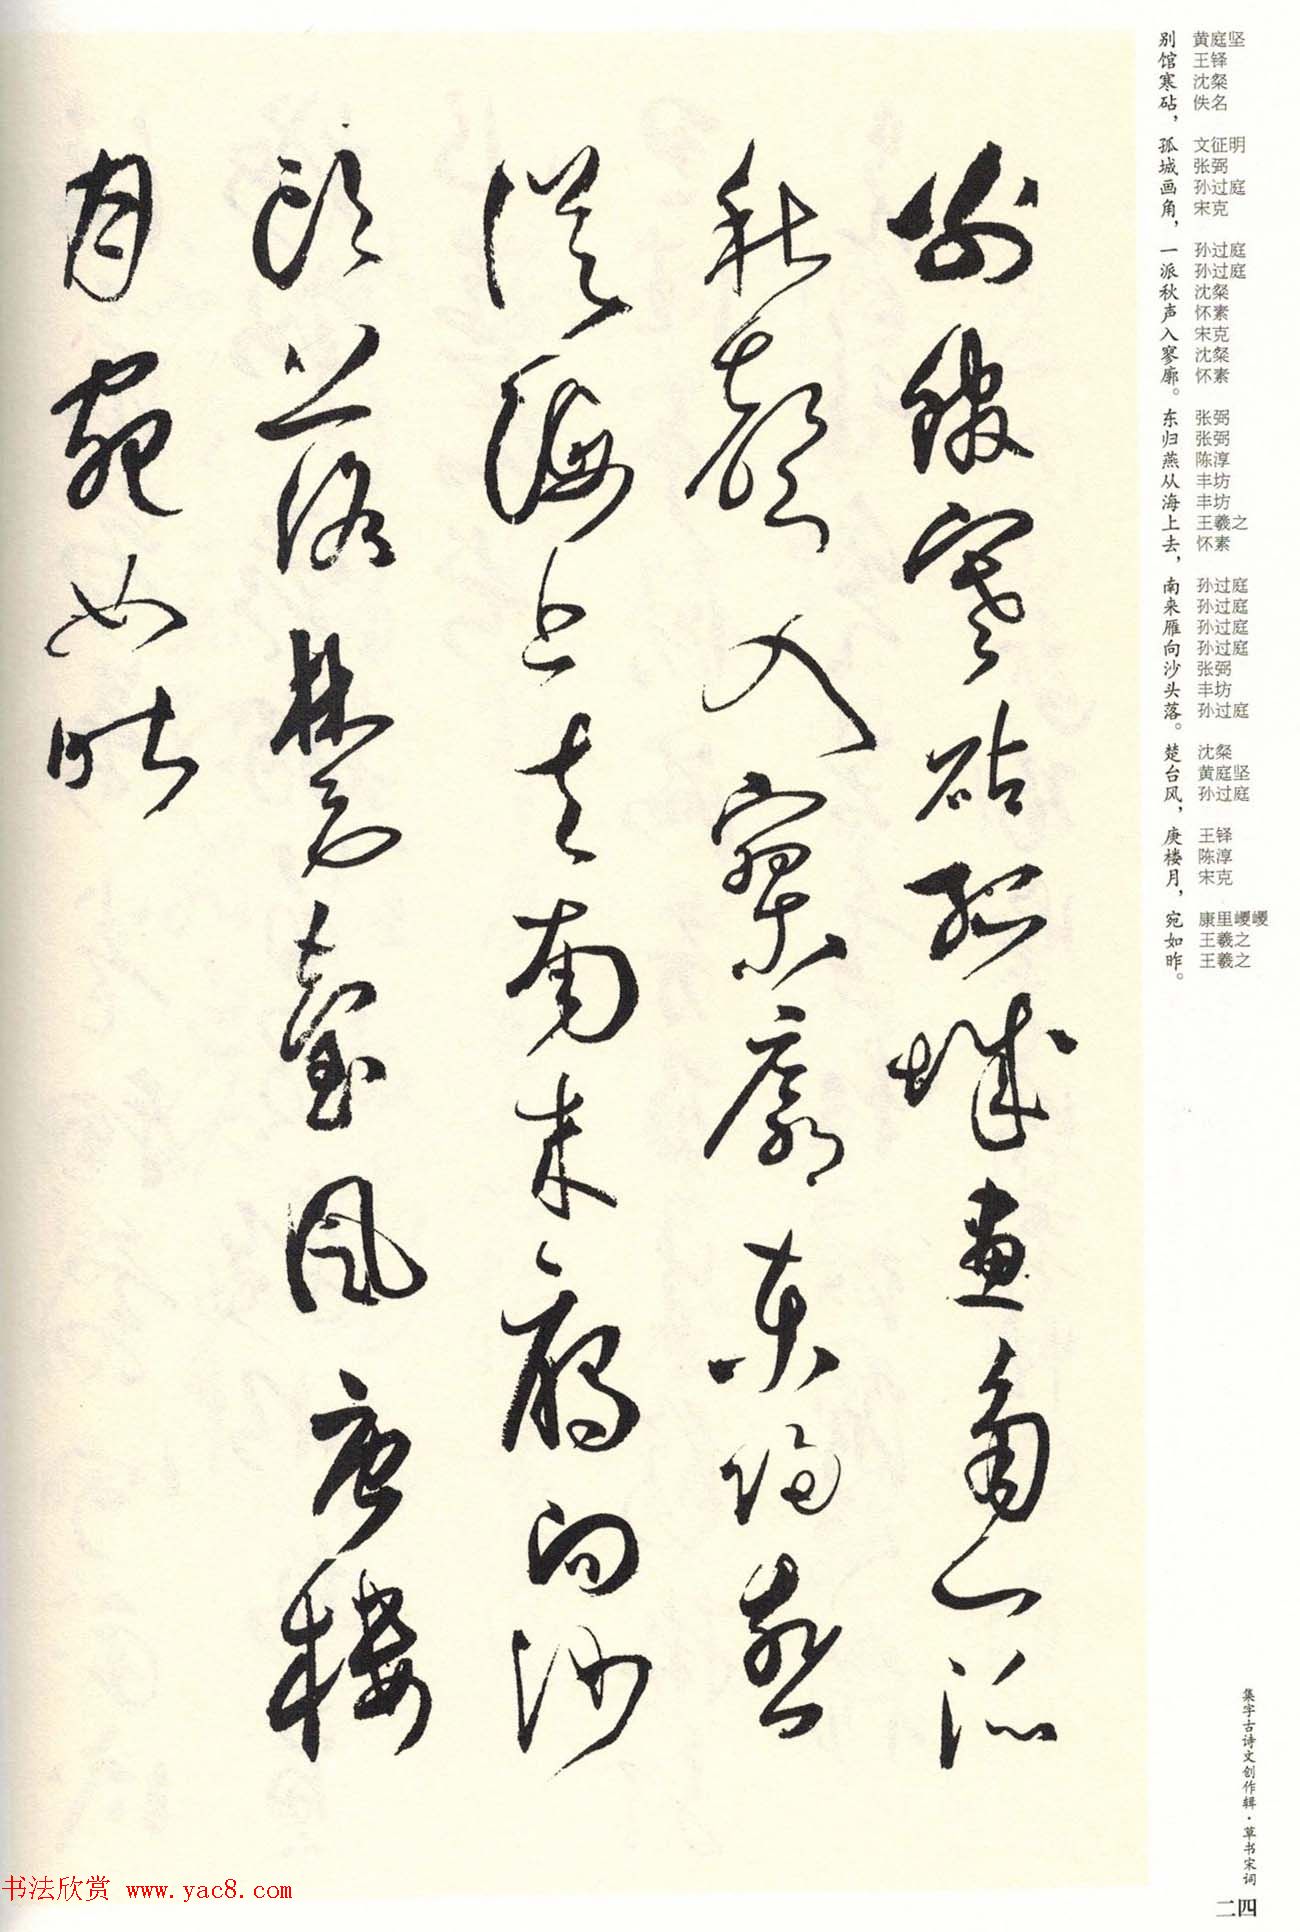 黄庭坚 王铎 沈粲 佚名 文征明 张弼 孙过庭 宋克 孙过庭 孙过庭 沈粲 怀素 宋克 沈粲 怀素 张弼 张弼 陈淳 丰坊 丰坊 王羲之 怀素 孙过庭 孙过庭 孙过庭 孙过庭 张弼 丰坊 孙过庭 沈粲 黄庭坚 孙过庭 王铎 陈淳 宋克 康里巎巎 王羲之 王羲之
别馆寒砧，孤城画角，一派秋声入寥廓。东归燕从海上去，南来雁向沙头落。楚台风，庾楼月，宛如昨。
別館寒砧孤城畫角一派
秋聲入寥廓東歸燕
從海上去南來雁向沙
頭落楚臺風庾樓
月宛如昨
集字古诗文创作辑·草书宋词
二四
书法欣赏 www.yac8.com